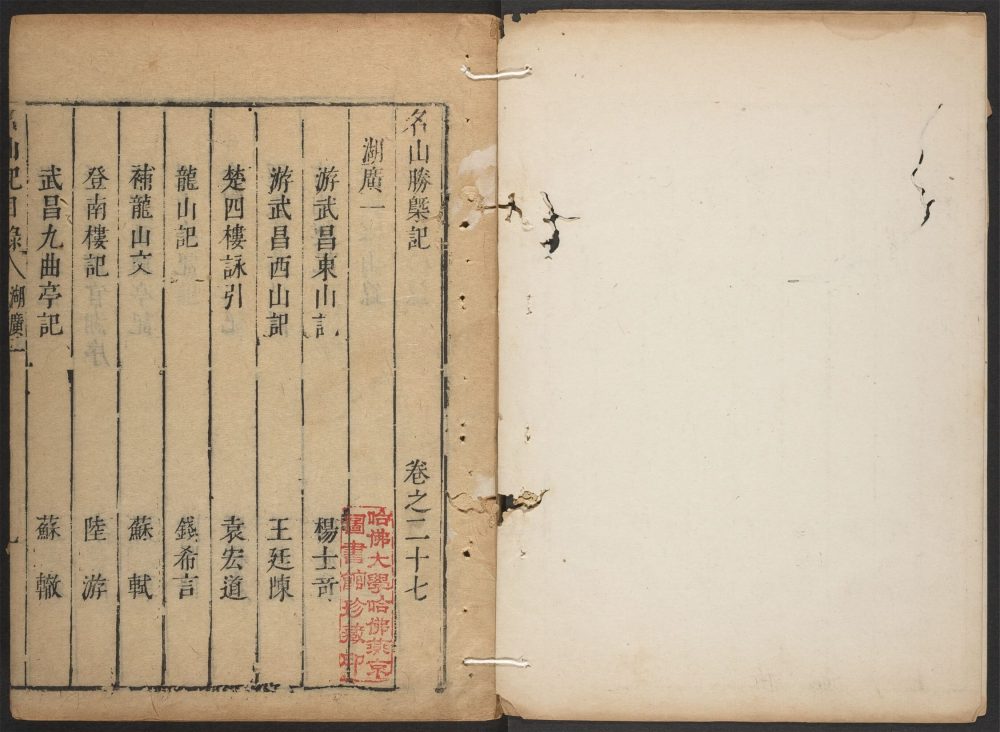 名山勝槩記 卷之二十七
湖廣一
游武昌東山記 楊士奇
游武昌西山記 王廷陳
楚四樓詠引 袁宏道
龍山記 錢希言
補龍山文 蘇軾
登南樓記 陸游
武昌九曲亭記 蘇轍
名山記目錄 湖廣一
哈佛大學哈佛燕京
圖書館珍藏印